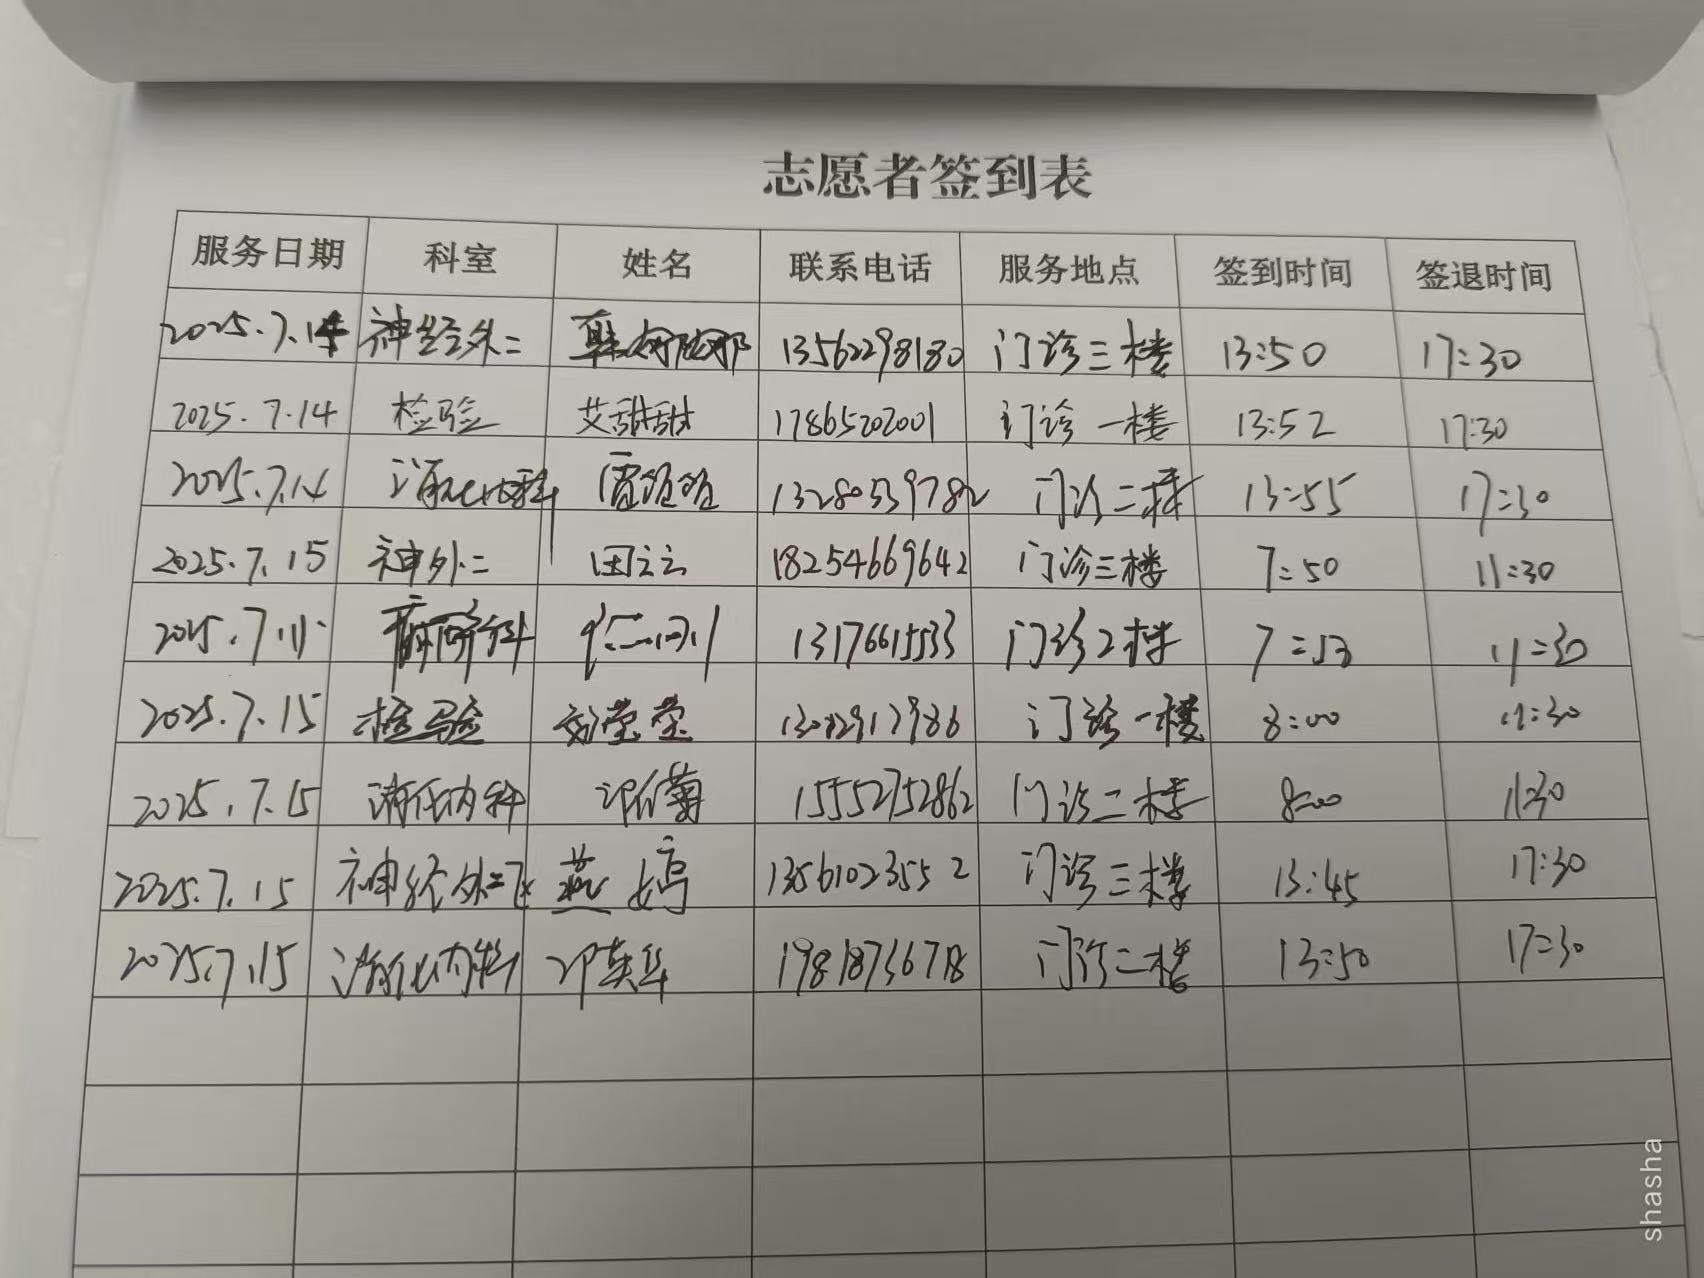 志愿者签到表
服务日期 科室 姓名 联系电话 服务地点 签到时间 签退时间
2025.7.14 神经外二 13562298180 门诊三楼 13:50 17:30
2025.7.14 检验 艾甜甜 17865202001 门诊一楼 13:52 17:30
2025.7.14 消化内科 13280539782 门诊二楼 13:55 17:30
2025.7.15 神外二 田云云 18254669642 门诊三楼 7:50 11:30
2025.7.15 13176615533 门诊2楼 7:53 11:30
2025.7.15 检验 门诊一楼 8:00 11:30
2025.7.15 消化内科 15552752862 门诊二楼 8:00 11:30
2025.7.15 神经外二 燕 13561023552 门诊三楼 13:45 17:30
2025.7.15 消化内科 邓英华 19818736718 门诊二楼 13:50 17:30
shasha